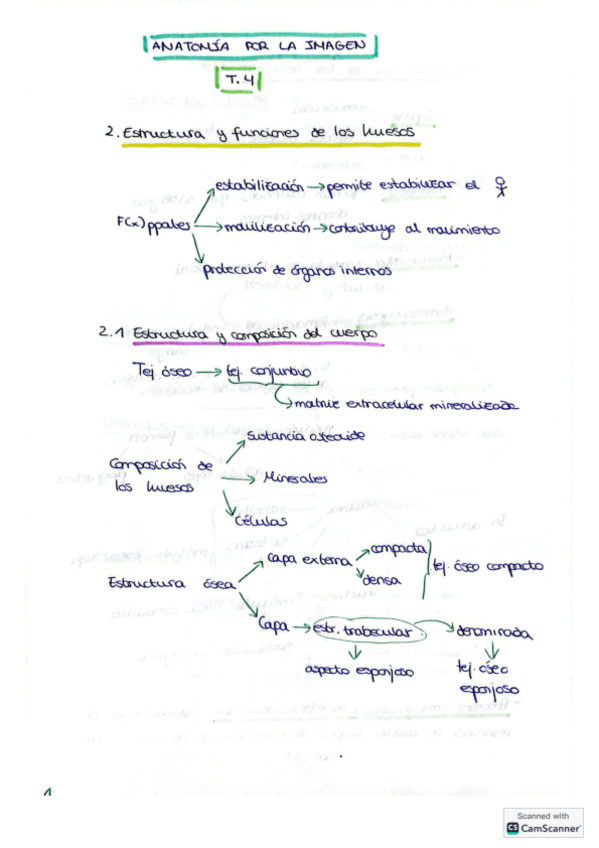 ANATOMÍA POR LA IMAGEN
T.4
2. Estructura y funciones de los huesos
estabilización → permite estabilizar el
F(x) ppales → movilización → contribuye al movimiento
protección de órganos internos
2.1 Estructura y composición del cuerpo
Tej óseo → tej. conjuntivo
matriz extracelular mineralizada
Sustancia osteoide
Composición de
los huesos → Minerales
Células
Capa externa
compacta
densa
tej. óseo compacto
Estructura ósea
Capa → estr. trabecular
denominada
aspecto esponjoso
tej. óseo
esponjoso
1
Scanned with
CS CamScanner